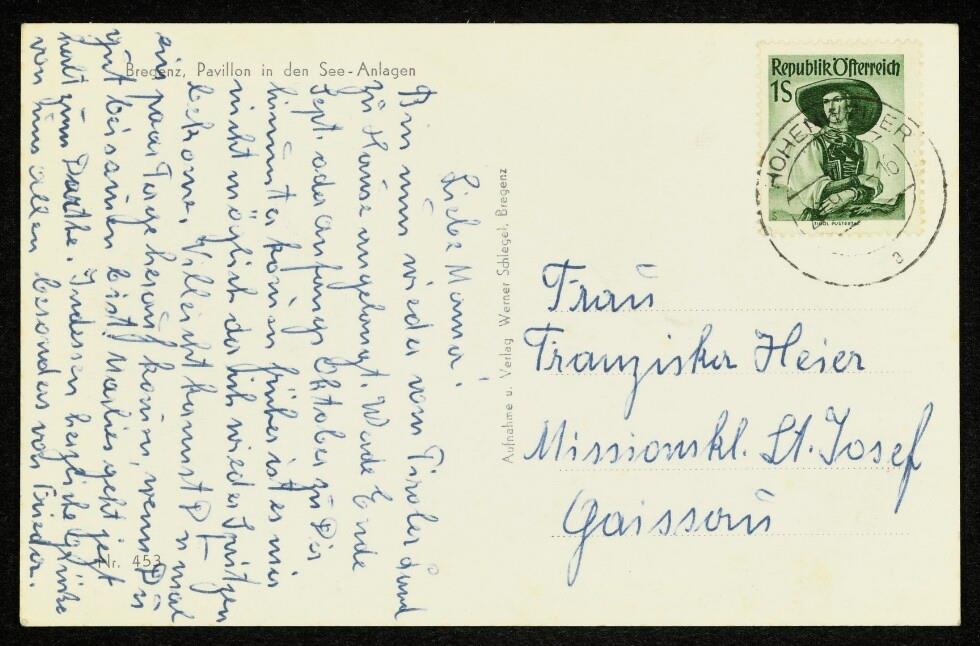 Bregenz, Pavillon in den See-Anlagen
Liebe Mama!
Bin nun wieder vom Tiroler Land
zu Hause angelangt. Werde Ende
Sept. oder anfangs Oktober zu Dir
hinunter kommen früher ist es mir
nicht möglich da ich wieder Spritzen
bekome. Villeicht kannst Du mal
ein paar Tage herauf komm, wenn Du
gut beisamen bist. Marlies geht jetzt
halt zum Dorthe. Indessen herzliche Grüße
von uns allen besonders von Frieda.
Nr. 453
Aufnahme u. Verlag Werner Schlegel, Bregenz
Republik Österreich
1S
TIROL PUSTERTAL
HOHEN
16
a
Frau
Franziska Heier
Missionskl. St. Josef
Gaissau